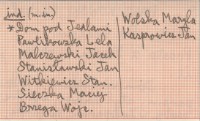 ind (m.in)
* Dom pod Jedlami
Pawlikowska Lela
Malczewski Jacek
Stanisławski Jan
Witkiewicz Stan.
Sieczka Maciej
Brzega Wojc.
Wolska Maryla
Kasprowicz Jan